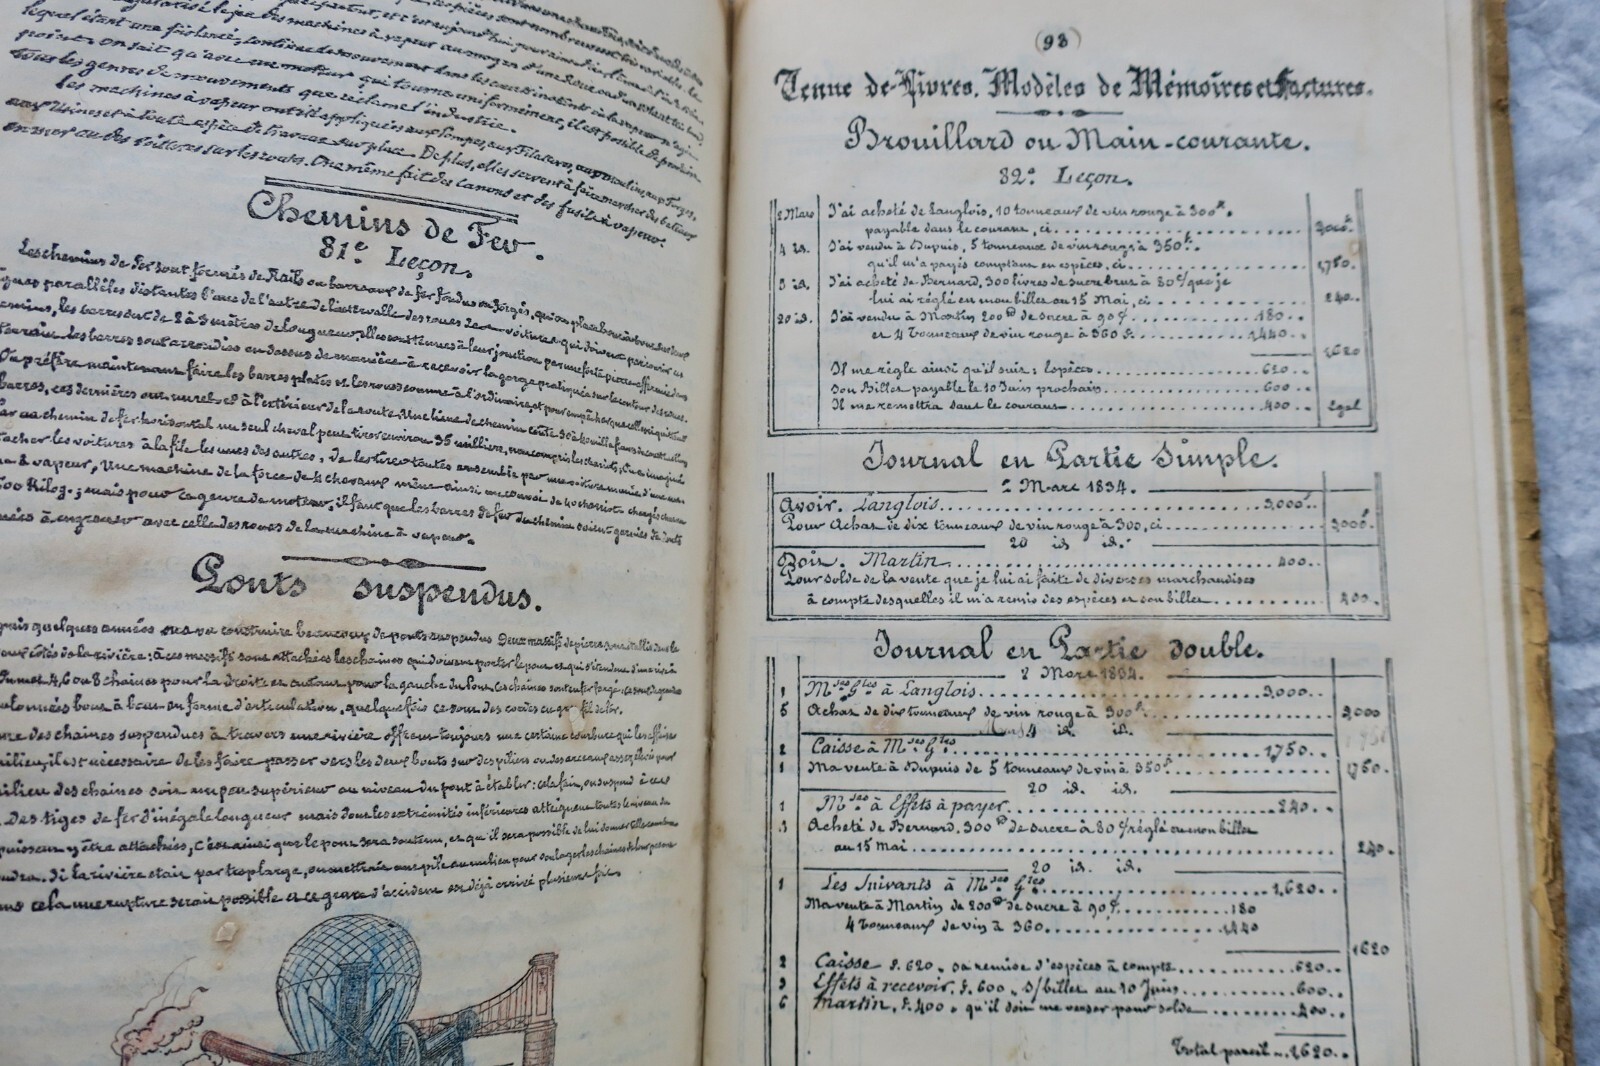 lequel étant une fois lancé, continue de mouvement dans les
point. On sait qu'avec un moteur qui tourne uniformément, il est possible de produire
tous les genres de mouvements que réclame l'industrie.
Les machines à vapeur ont été appliquées aux Pompes, aux Filatures, aux moulins, aux Forges,
aux Usines et à toute espèce de travaux sur place. De plus, elles servent à faire marcher des bateaux
en mer ou des voitures sur les routes. On a même fait des canons et des fusils à vapeur.
Chemins de Fer.
81e Leçon.
Les chemins de Fer sont formés de Rails ou barreaux de fer fondus ou forgés, qu'on place bout à bout sur deux
lignes parallèles distantes l'une de l'autre de l'intervalle des roues des voitures qui doivent parcourir ces
chemins, les barres ont de 2 à 3 mètres de longueur, elles sont tenues à leur jonction par une forte pierre affermie dans
terrain. Les barres sont arrondies en dessus de manière à recevoir la gorge pratiquée sur le contour des roues.
On préfère maintenant faire les barres plates et les roues comme à l'ordinaire, et pour empêcher que celles-ci quittent
barres, ces dernières ont un rebord à l'extérieur de la route. Une lieue de chemin coûte
Par un chemin de fer horisontal un seul cheval peut tirer environ 36 milliers, non compris les chariots. On a imaginé
attacher les voitures à la file les unes des autres, de les tirer toutes ensemble par une voiture munie d'une ma-
à vapeur, Une machine de la force de 4 chevaux mène ainsi un convoi de chariots chargés chacun
Kilog.; mais pour ce genre de moteur, il faut que les barres de fer du chemin soient garnies de dents
à engrener avec celle des roues de la machine à vapeur.
Ponts suspendus.
puis quelques années on a vu construire beaucoup de ponts suspendus Deux massifs de pierre sont établis sur le
côtés de la rivière: à ces massifs sont attachées les chaines qui doivent porter le pont et qui s'étendent d'une rive à
4, 6 ou 8 chaines pour la droite et autant pour la gauche du Pont. Ces chaines sont en fer forgé,
bout à bout en forme d'articulation, quelquefois ce sont des cordes en gros fil de fer.
des chaines suspendues à travers une rivière offrent toujours une certaine courbure qui les affaisse
milieu, il est nécessaire de les faire passer vers les deux bouts sur des piliers ou des arceaux assez élevés pour
milieu des chaines soit un peu supérieur au niveau du pont à établir: cela fait, on suspend à ces
Des tiges de fer d'inégale longueur mais dont les extrémités inférieures atteignent toutes le niveau du
puissent y être attachées, c'est ainsi que le pont sera soutenu, et qu'il sera possible de lui donner telle
Si la rivière était par trop large, on mettrait une pile au milieu pour soulager les chaines de leur
cela une rupture serait possible et ce genre d'accident est déjà arrivé plusieurs fois.
(93)
Tenue de Livres. Modèles de Mémoires et Factures.
Brouillard ou Main-courante.
82e Leçon.
2 Mars J'ai acheté de Langlois, 10 tonneaux de vin rouge à 300f.
payable dans le courant, ci 3,000f
4 id. J'ai vendu à Dupuis, 5 tonneaux de vin rouge à 350f.
qu'il m'a payés comptant en espèces, ci 1,750.
5 id. J'ai acheté de Bernard, 300 livres de sucre brut à 80c/ que je
lui ai réglé en mon billet au 15 Mai, ci 240..
20 id. J'ai vendu à Martin 200 de sucre à 90c. 180..
et 4 Tonneaux de vin rouge à 360 f. 1,440..
1,620
Il me règle ainsi qu'il suit; Espèces 620..
Son Billet payable le 10 Juin prochain 600..
Il me remettra dans le courant 400.. Egal
Journal en Partie Simple.
2 Mars 1834.
Avoir. Langlois 3,000f..
Pour Achat de dix tonneaux de vin rouge à 300, ci 3,000f.
20 id id.
Doit. Martin 400..
Pour solde de la vente que je lui ai faite de diverses marchandises
à compte desquelles il m'a remis des espèces et son billet 400..
Journal en Partie double.
2 Mars 1834.
1 Mses Gles à Langlois 3,000..
5 Achat de dix tonneaux de vin rouge à 300f. 3,000
4 id. id.
2 Caisse à Mses Gles 1,750..
1 Ma vente à Dupuis de 5 tonneaux de vin à 350f. 1,750
20 id. id.
1 Mses à Effets à payer 240..
3 Acheté de Bernard, 300 de sucre à 80c/ réglé en mon billet
au 15 Mai 240.
20 id. id.
1 Les Suivants à Mses Gles 1,620..
Ma vente à Martin de 200 de sucre à 90c. 180
4 Tonneaux de vin à 360 1,440
1620
2 Caisse f. 620, sa remise d'espèces à compte 620..
3 Effets à recevoir, f. 600, s/billet au 10 Juin 600..
6 Martin, f. 400, qu'il doit me verser pour solde 400..
Total pareil 1,620..